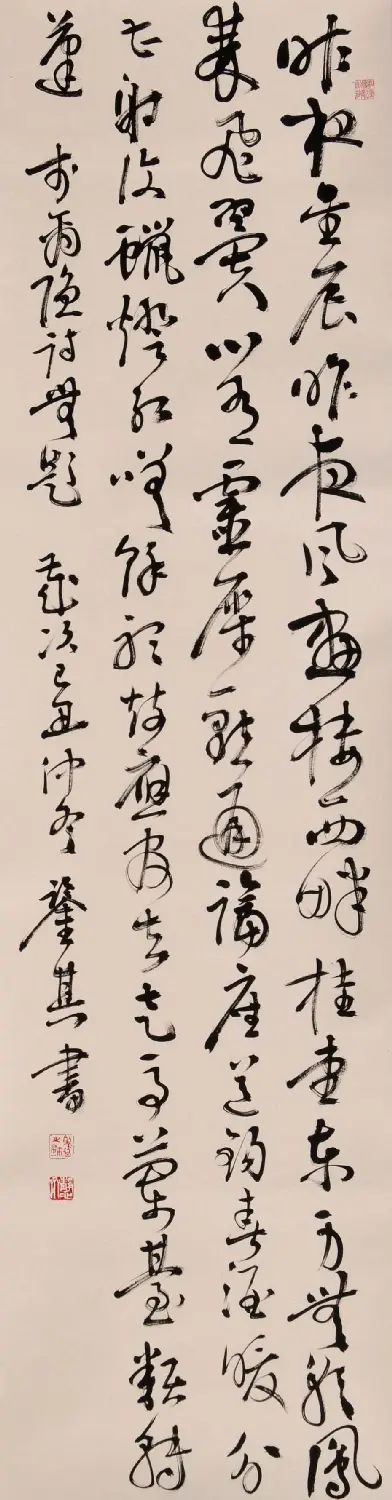 昨夜星辰昨夜風畫楼西畔桂堂東身無彩鳳
雙飛翼心有靈犀一點通隔座送鈎春酒暖分
曹射覆蠟燈紅嗟餘聽鼓應官去走馬蘭臺類轉
蓬 李商隐詩無題 歲次己丑仲冬 其書